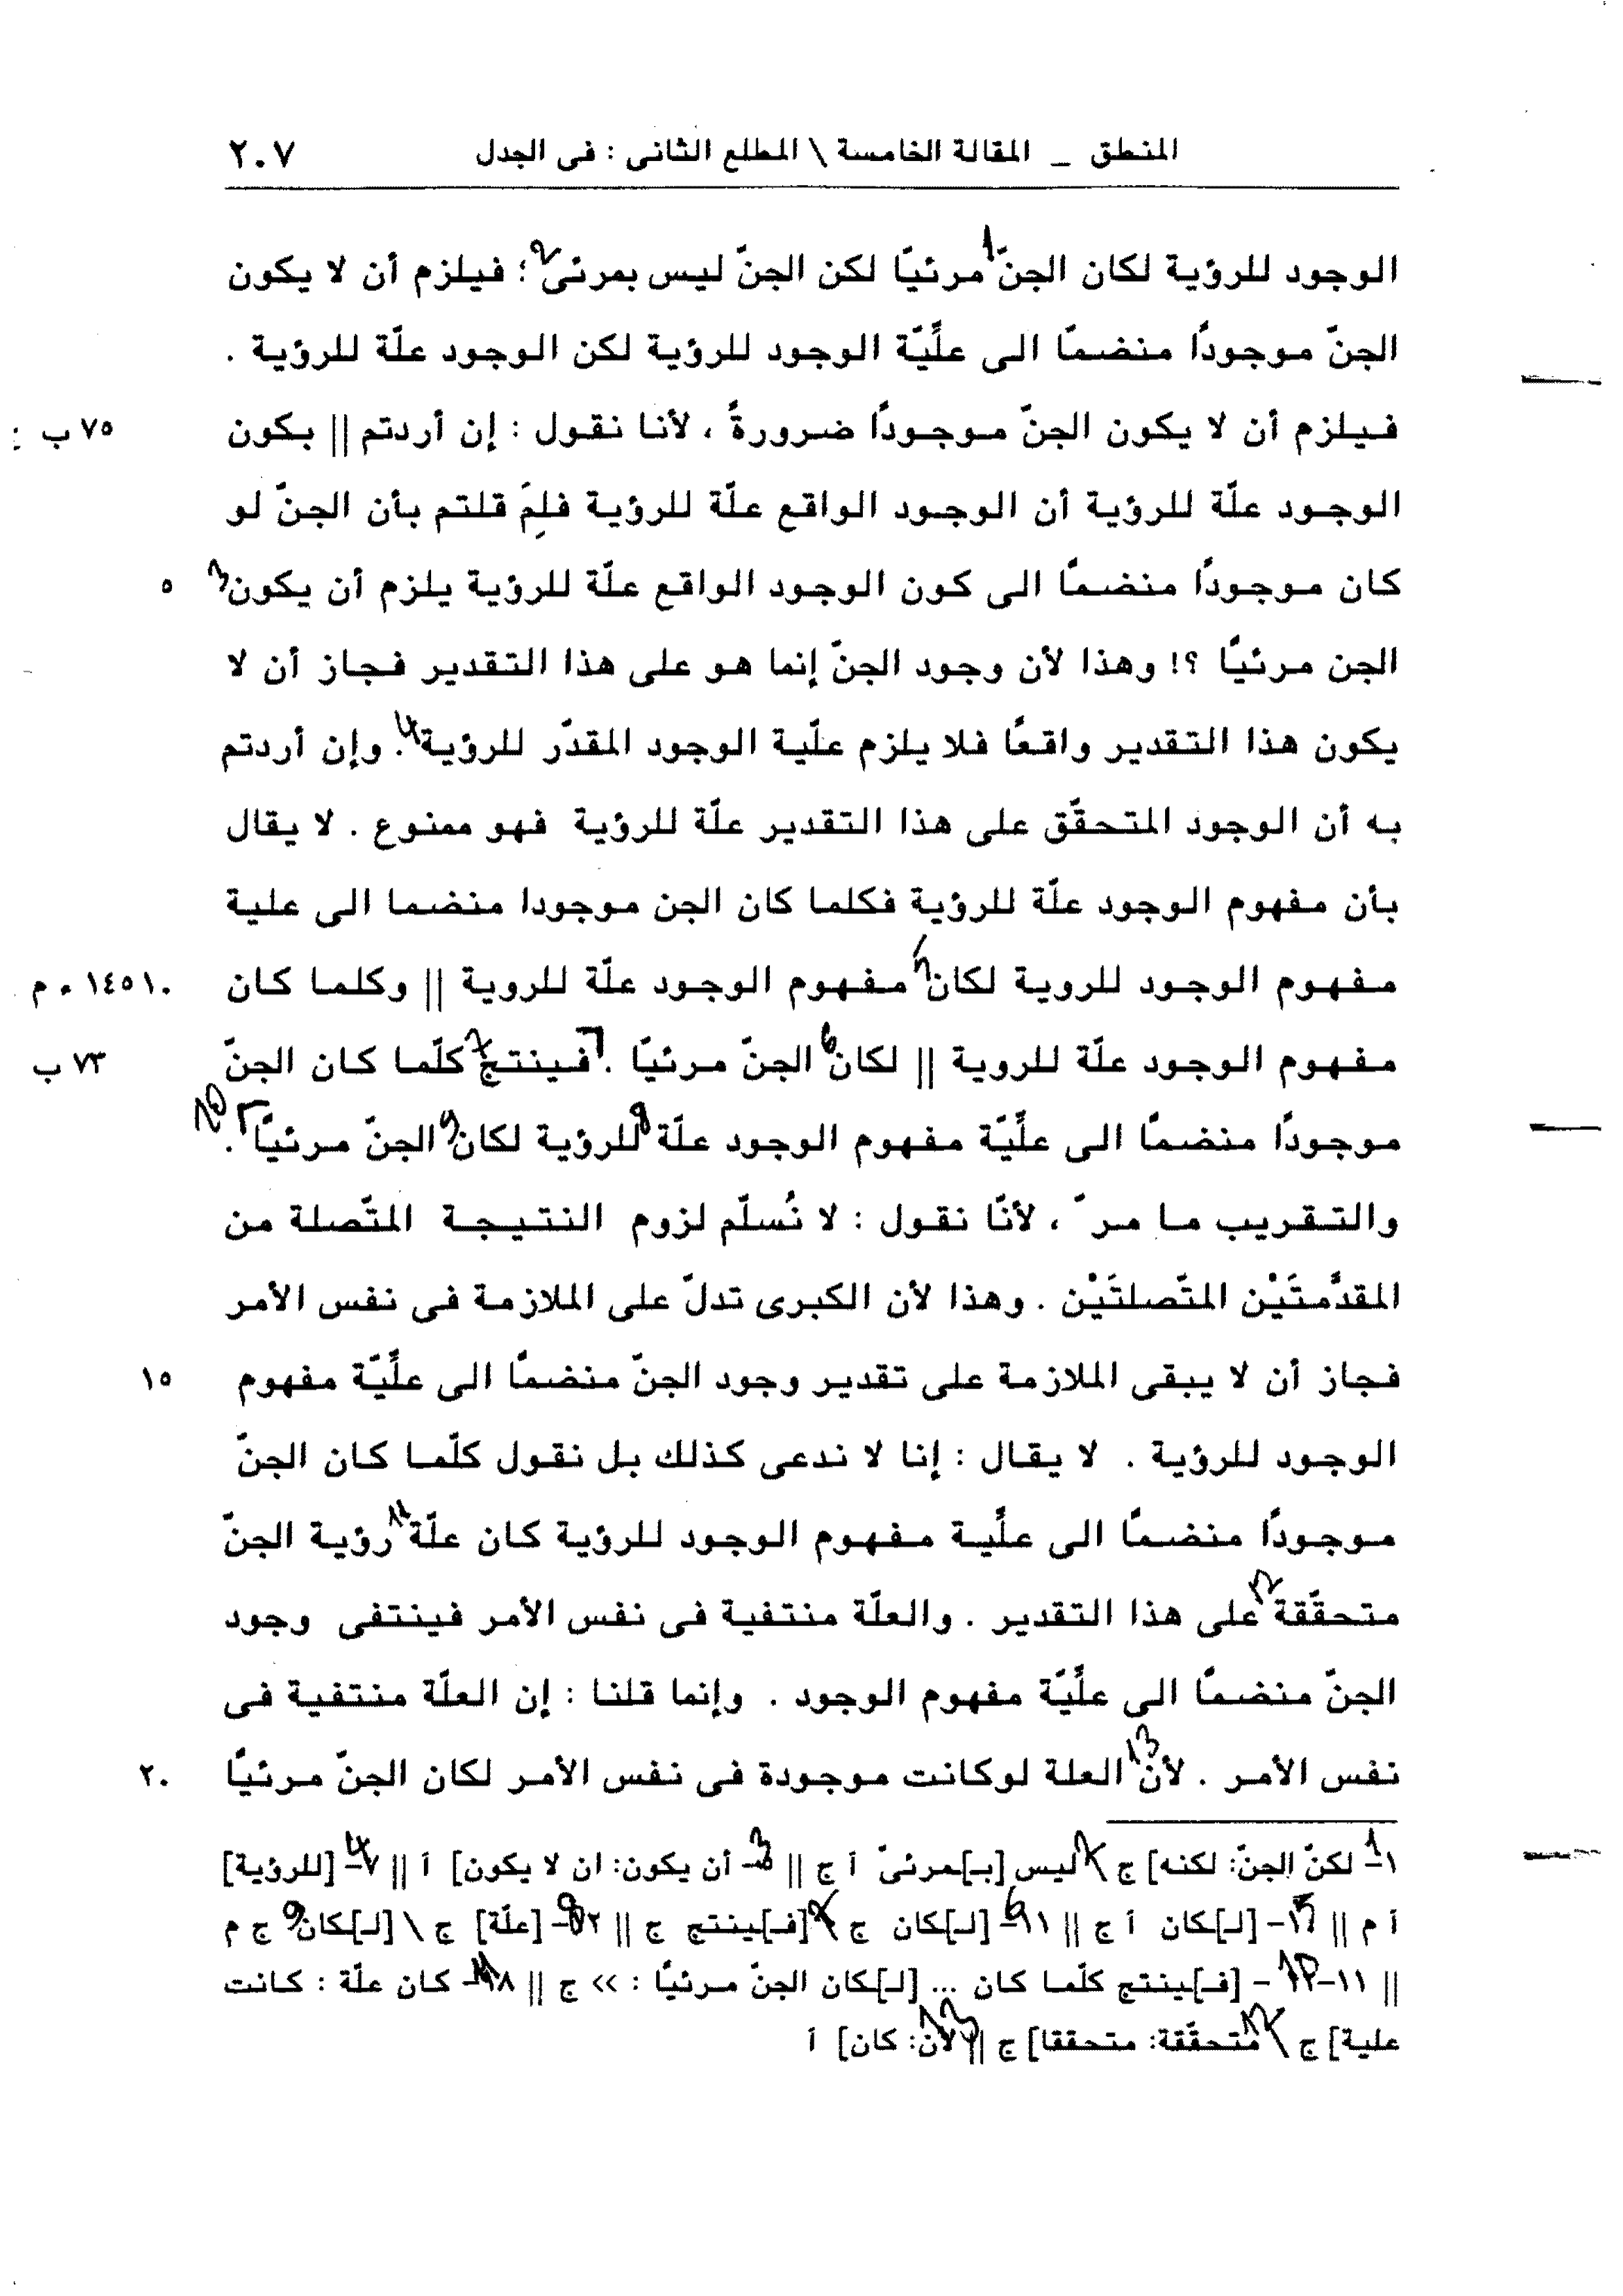 المنطق _ المقالة الخامسة \ المطلع الثانى : فى الجدل ٢٠٧
الوجود للرؤية لكان الجنّ 1 مرئيًا لكن الجنّ ليس بمرئى 2 ؛ فيلزم أن لا يكون
الجنّ موجودًا منضمًا الى علّيّة الوجود للرؤية لكن الوجود علّة للرؤية .
فيلزم أن لا يكون الجنّ موجودًا ضرورةً ، لأنا نقول : إن أردتم || بكون ٧٥ ب
الوجود علّة للرؤية أن الوجود الواقع علّة للرؤية فلِمَ قلتم بأن الجنّ لو
كان موجودًا منضمًا الى كون الوجود الواقع علّة للرؤية يلزم أن يكون 3 ٥
الجن مرئيًا ؟! وهذا لأن وجود الجنّ إنما هو على هذا التقدير فجاز أن لا
يكون هذا التقدير واقعًا فلا يلزم علّية الوجود المقدّر للرؤية 4 . وإن أردتم
به أن الوجود المتحقّق على هذا التقدير علّة للرؤية فهو ممنوع . لا يقال
بأن مفهوم الوجود علّة للرؤية فكلما كان الجن موجودا منضما الى علية
مفهوم الوجود للروية لكان 5 مفهوم الوجود علّة للروية || وكلما كان ١٤٥١٠ م
مفهوم الوجود علّة للروية || لكان 6 الجنّ مرئيًا . فينتج 7 كلّما كان الجنّ ٧٣ ب
موجودًا منضمًا الى علّيّة مفهوم الوجود علّة 8 للرؤية لكان 9 الجنّ مرئيًا 10 .
والتقريب ما مرّ ، لأنّا نقول : لا نُسلّم لزوم النتيجة المتّصلة من
المقدّمتَيْن المتّصلتَيْن . وهذا لأن الكبرى تدلّ على الملازمة فى نفس الأمر
فجاز أن لا يبقى الملازمة على تقدير وجود الجنّ منضمًا الى علّيّة مفهوم ١٥
الوجود للرؤية . لا يقال : إنا لا ندعى كذلك بل نقول كلّما كان الجنّ
موجودًا منضمًا الى علّية مفهوم الوجود للرؤية كان علّة 11 رؤية الجنّ
متحقّقة 12 على هذا التقدير . والعلّة منتفية فى نفس الأمر فينتفى وجود
الجنّ منضمًا الى علّيّة مفهوم الوجود . وإنما قلنا : إن العلّة منتفية فى
نفس الأمر . لأن 13 العلة لوكانت موجودة فى نفس الأمر لكان الجنّ مرئيًا ٢٠
١- 1 لكنّ الجنّ: لكنه] ج \ 2 ليس [بـ]مرئىّ أ ج || 3 - أن يكون: ان لا يكون] أ || ٧- 4 [للرؤية]
أ م || ١٠- 5 [لـ]كان أ ج || ١١- 6 [لـ]كان ج \ 7 [فـ]ينتج ج || ١٢- 8 [علّة] ج \ [لـ]كان 9 ج م
|| ١١-١٢ 10 - [فـ]ينتج كلّما كان ... [لـ]كان الجنّ مرئيًا : >> ج || ١٨- 11 كان علّة : كانت
علية] ج \ 12 متحقّقة: متحققا] ج || 13 لأن: كان] أ